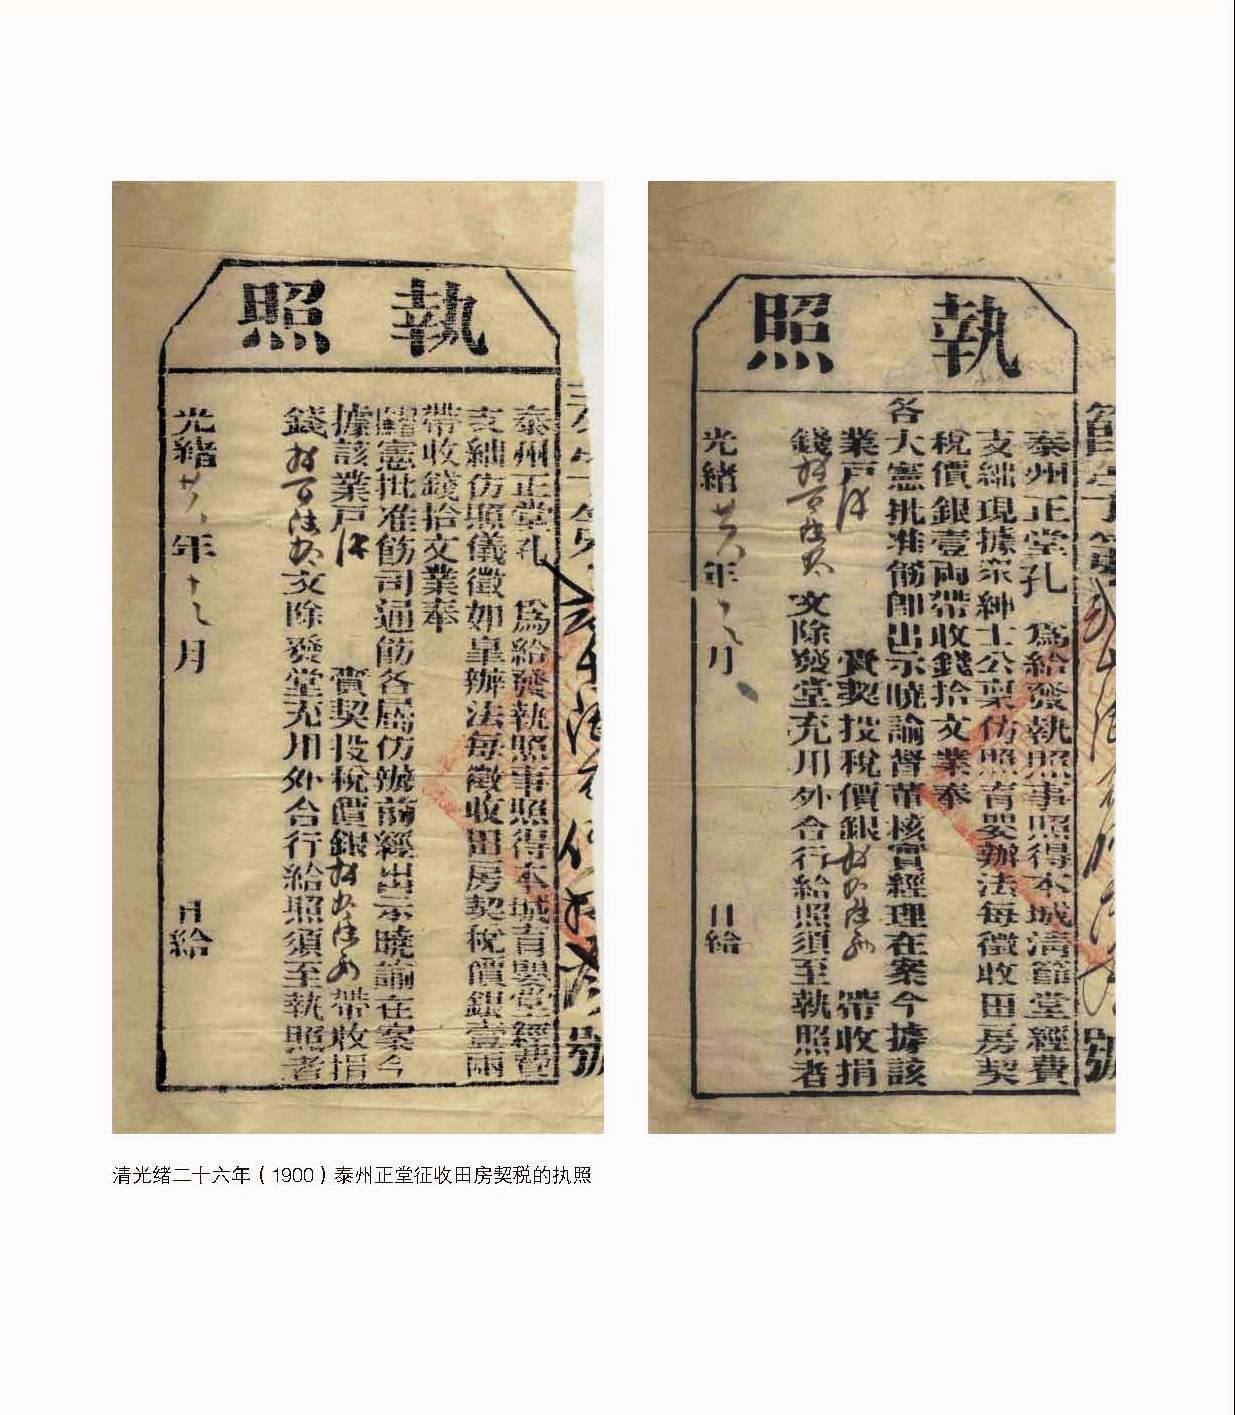 執照
號
泰州正堂孔 為給發執照事照得本城育嬰堂經費
支絀仿照儀徵如皐辦法每徵收田房契稅價銀壹兩
帶收錢拾文業奉
憲批准飭司通飭各屬仿辦前經出示曉諭在案今
據該業戶 賫契投稅價銀 帶收捐
錢 文除發堂充用外合行給照須至執照者
光緒廿六年十 月 日給
執照
號
泰州正堂孔 為給發執照事照得本城清節堂經費
支絀現據眾紳士公稟仿照育嬰辦法每徵收田房契
稅價銀壹兩帶收錢拾文業奉
各大憲批准飭即出示曉諭督董核實經理在案今據該
業戶 賫契投稅價銀 帶收捐
錢 文除發堂充用外合行給照須至執照者
光緒廿六年 月 日給
清光绪二十六年（1900）泰州正堂征收田房契税的执照